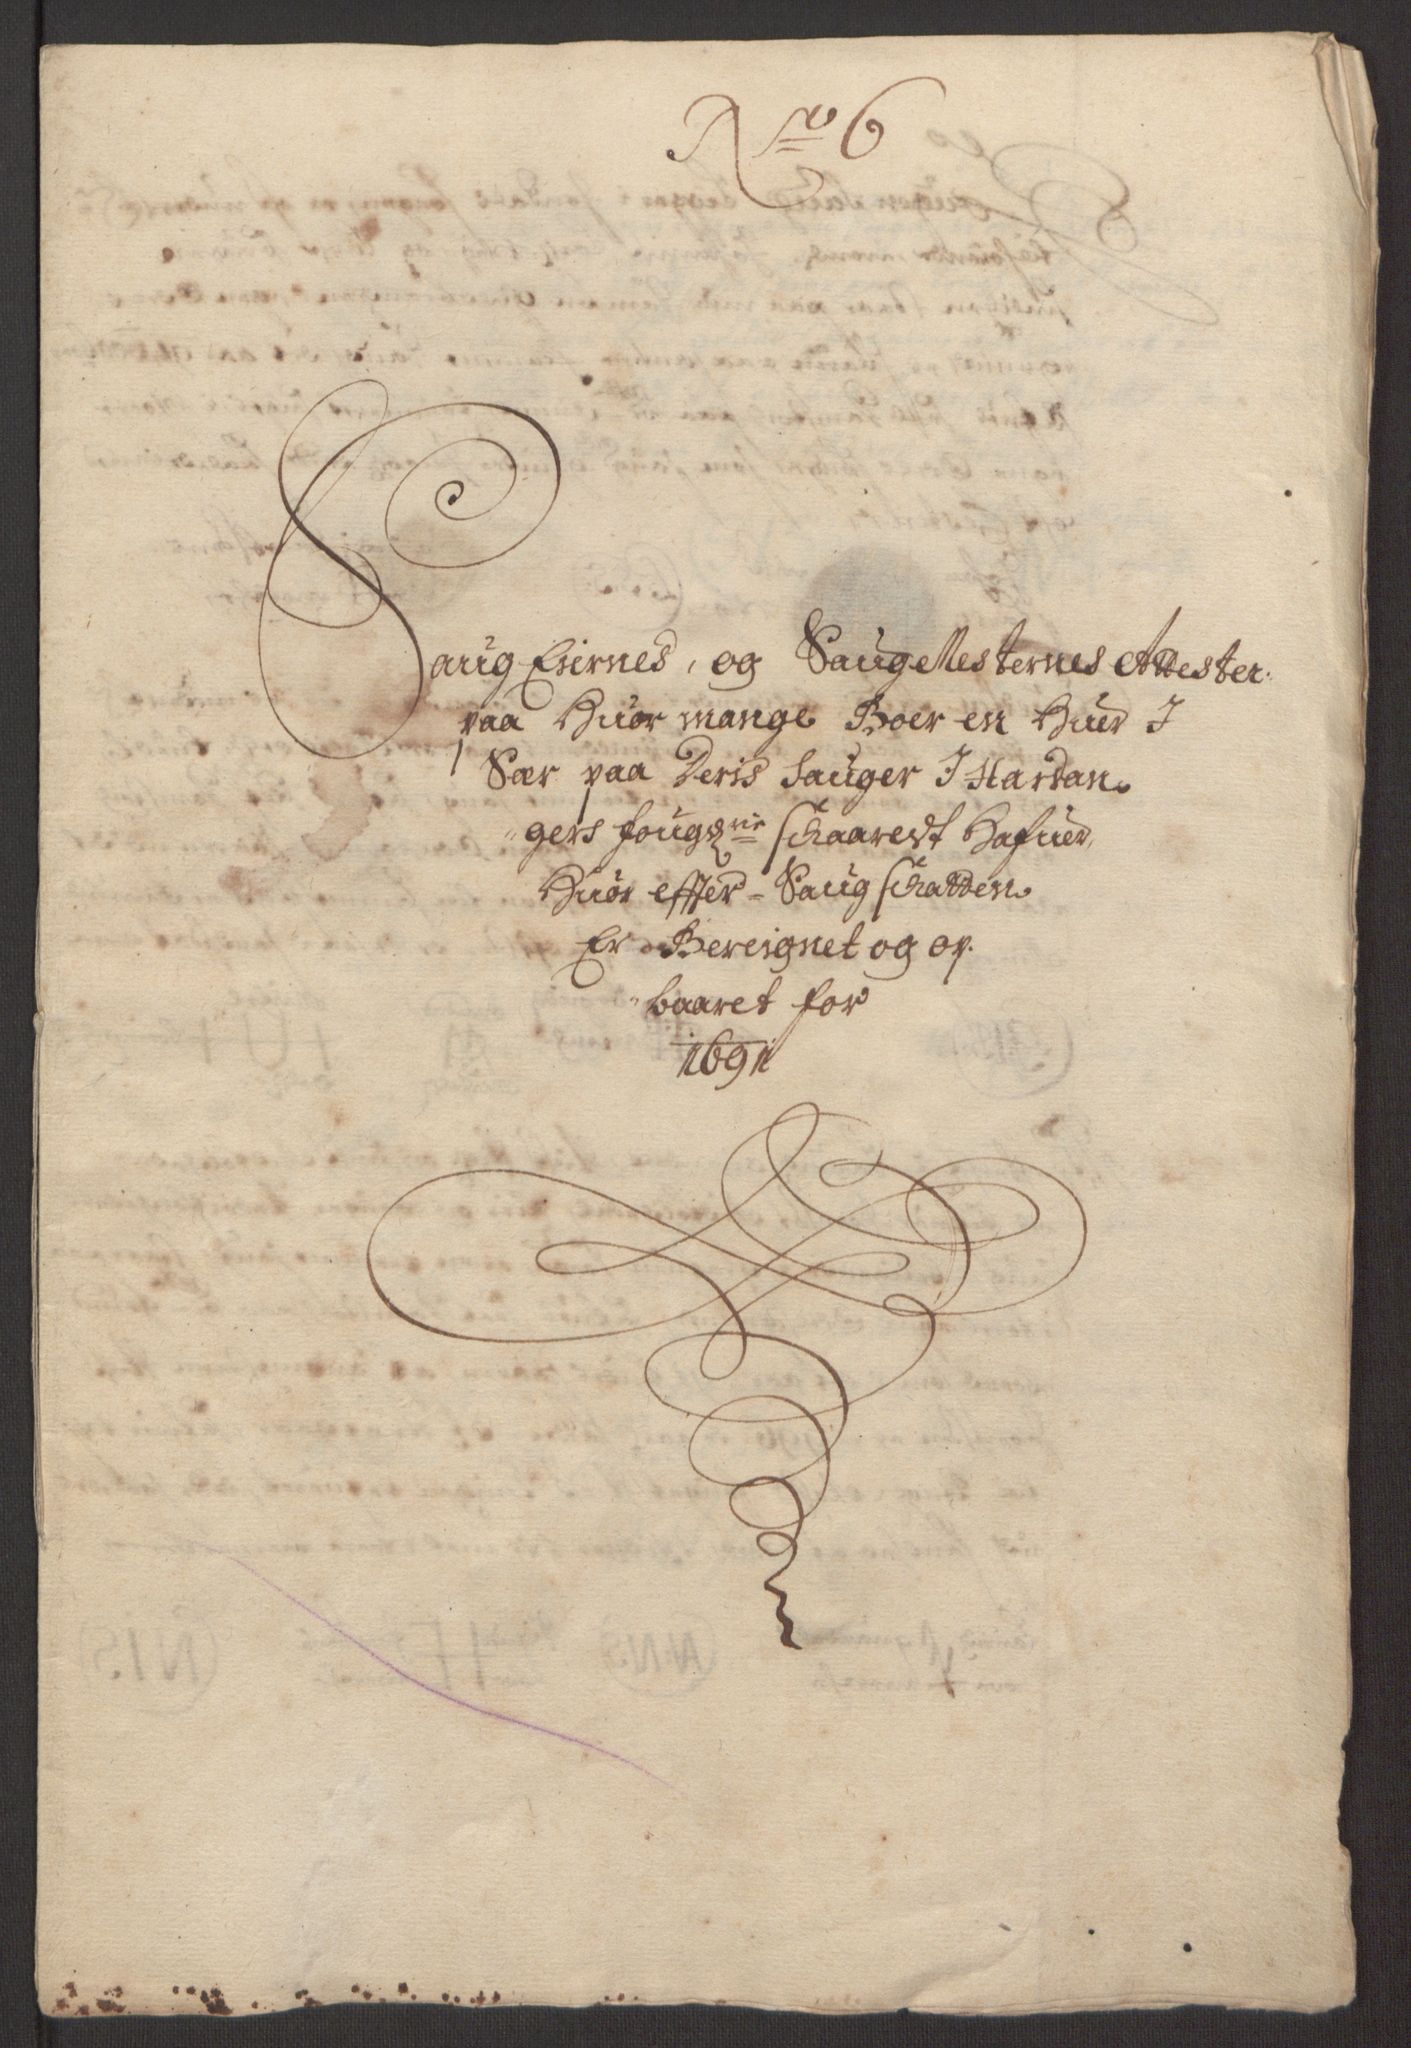 No 6
Saug Eiernes, og Saugmesternes Attester
paa Huor mange Boer en Huer I
Sær paa Deris Sauger I Hardan
"gers fougderie Schaaredt Hafuer,
Huor effter Saug Schatten
Er Bereignet og op
"baaret for
1691